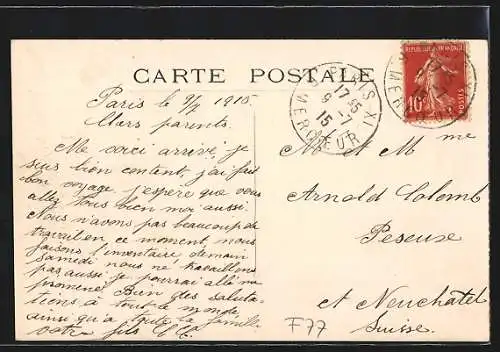 CARTE POSTALE
Paris le 9/7 1915
Chers parents.
Me voici arrivé, je
suis bien content, j'ai fait
bon voyage. j'espère que vous
allez tous bien moi aussi.
Nous n'avons pas beaucoup de
travail en ce moment, nous
faisons l'inventaire, demain
samedi nous ne travaillons
pas aussi je pourrai allé me
promener. Bien des saluta-
tions à tout le monde,
ainsi qu'a toute la famille.
votre fils
PARIS XI
17 35
9 -7
15
REPUBLIQUE FRANÇAISE
10
POSTES
Mr et Mme
Arnold Colomb
Peseux
et Neuchâtel
Suisse.
F77